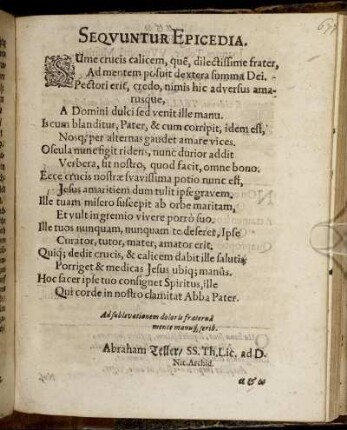 SEQVUNTUR EPICEDIA.
SUme crucis calicem, quē, dilectissime frater,
Ad mentem posuit dextera summa Dei.
Pectori erit, credo, nimis hic adversus ama-
rusque,
A Domini dulci sed venit ille manu.
Is cum blanditur, Pater, & cum corripit, idem est,
Nosq; per alternas gaudet amare vices.
Oscula nunc figit ridens, nunc durior addit
Verbera, sit nostro, quod facit, omne bono.
Ecce crucis nostræ svavissima potio nunc est,
Jesus amaritiem dum tulit ipse gravem.
Ille tuam misero suscepit ab orbe maritam,
Et vult in gremio vivere porrò suo.
Ille tuos nunquam, nunquam te deseret, Ipse
Curator, tutor, mater, amator erit,
Quiq; dedit crucis, & calicem dabit ille salutis,
Porriget & medicas Jesus ubiq; manûs.
Hoc sacer ipse tuo consignet Spiritus, ille
Qui corde in nostro clamitat Abba Pater.
Ad sublevationem doloris fraternâ
mente manuq; scrib.
Abraham Teller/ SS. Th. Lic. ad D.
Nic. Archid.
α & ω